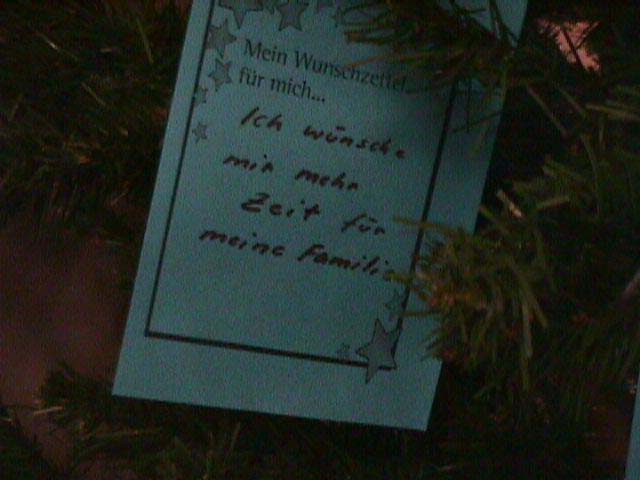 Mein Wunschzettel
für mich...
Ich wünsche
mir mehr
Zeit für
meine Familie